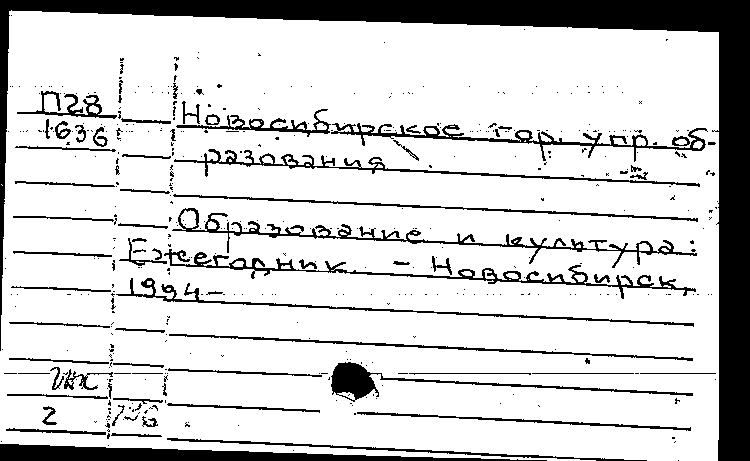 П28
1636
Новосибирское гор. упр. об-
разования
Образование и культура:
Ежегодник. - Новосибирск,
1994-
2